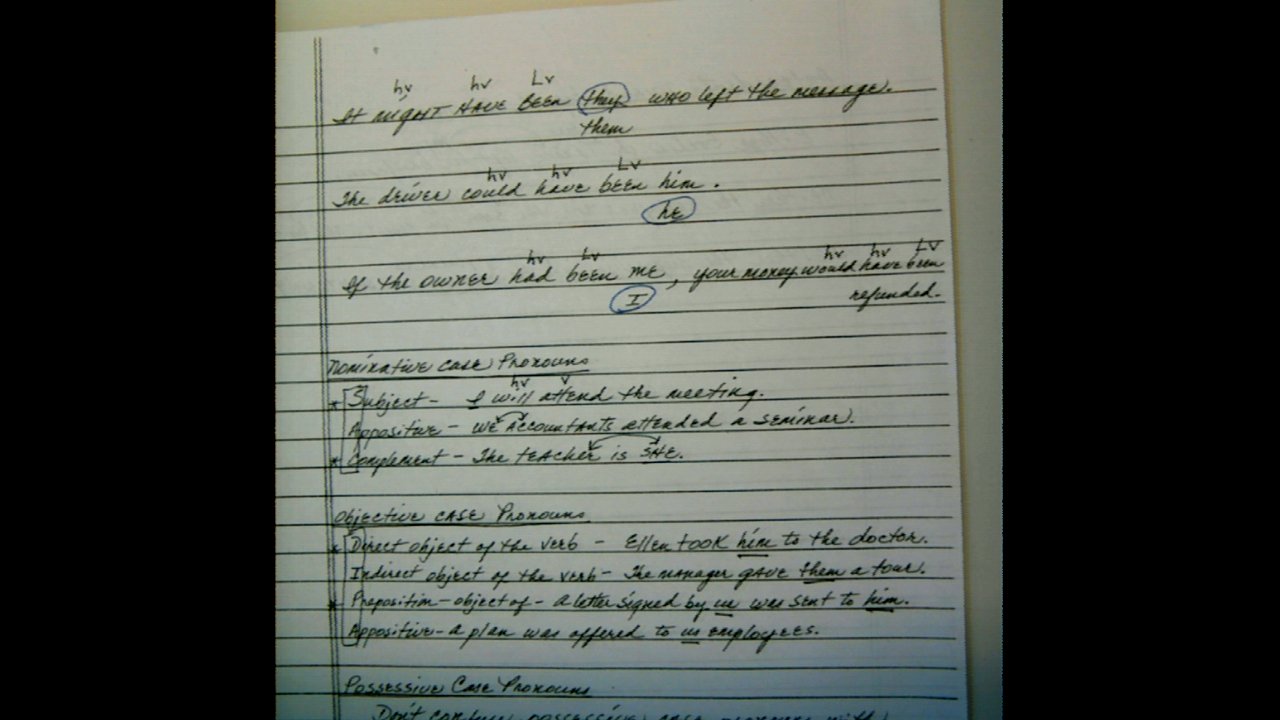 hv hv Lv
It might HAVE BEEN they who left the message.
them
hv hv Lv
The driver could have been him.
he
hv Lv hv hv LV
If the owner had been me, your money would have been
I refunded.
Nominative case Pronouns
hv v
* Subject - I will attend the meeting.
Appositive - we Accountants attended a seminar.
* Complement - The teacher is SHE.
Objective case Pronouns
* Direct object of the verb - Ellen took him to the doctor.
Indirect object of the verb - The manager gave them a tour.
* Preposition - object of - a letter signed by us was sent to him.
Appositive - a plan was offered to us employees.
Possessive Case Pronouns
Don't confuse possessive case pronouns with